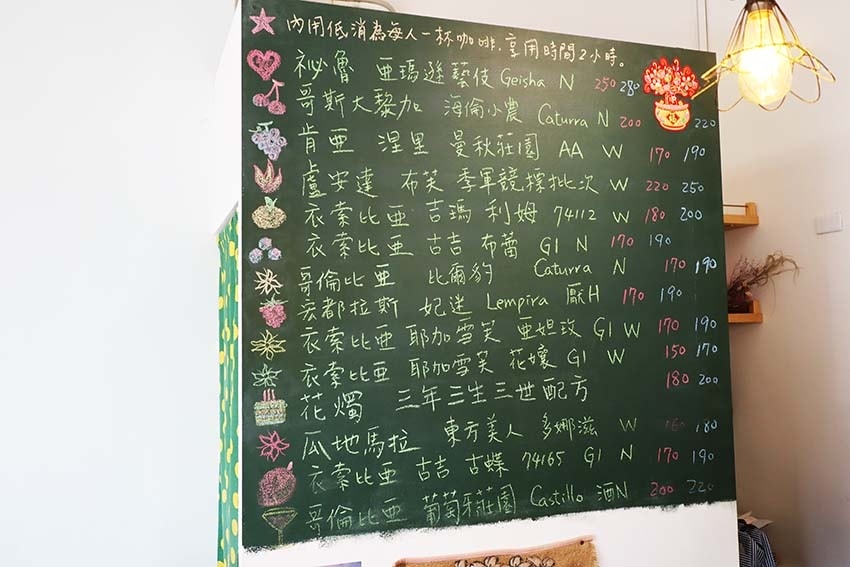 內用低消為每人一杯咖啡,享用時間2小時。
祕魯 亞瑪遜藝伎 Geisha N 250 280
哥斯大黎加 海倫小農 Caturra N 200 220
肯亞 涅里 曼秋莊園 AA W 170 190
盧安達 布芙 季軍競標批次 W 220 250
衣索比亞 吉瑪 利姆 74112 W 180 200
衣索比亞 古吉 布蕾 G1 N 170 190
哥倫比亞 比爾豹 Caturra N 170 190
宏都拉斯 妃迷 Lempira 厭H 170 190
衣索比亞 耶加雪芙 亞妲玫 G1 W 170 190
衣索比亞 耶加雪芙 花壤 G1 W 150 170
花燭 三年三生三世配方 180 200
瓜地馬拉 東方美人 多娜滋 W 160 180
衣索比亞 古吉 古蝶 74165 G1 N 170 190
哥倫比亞 葡萄牙莊園 Castillo 酒N 200 220